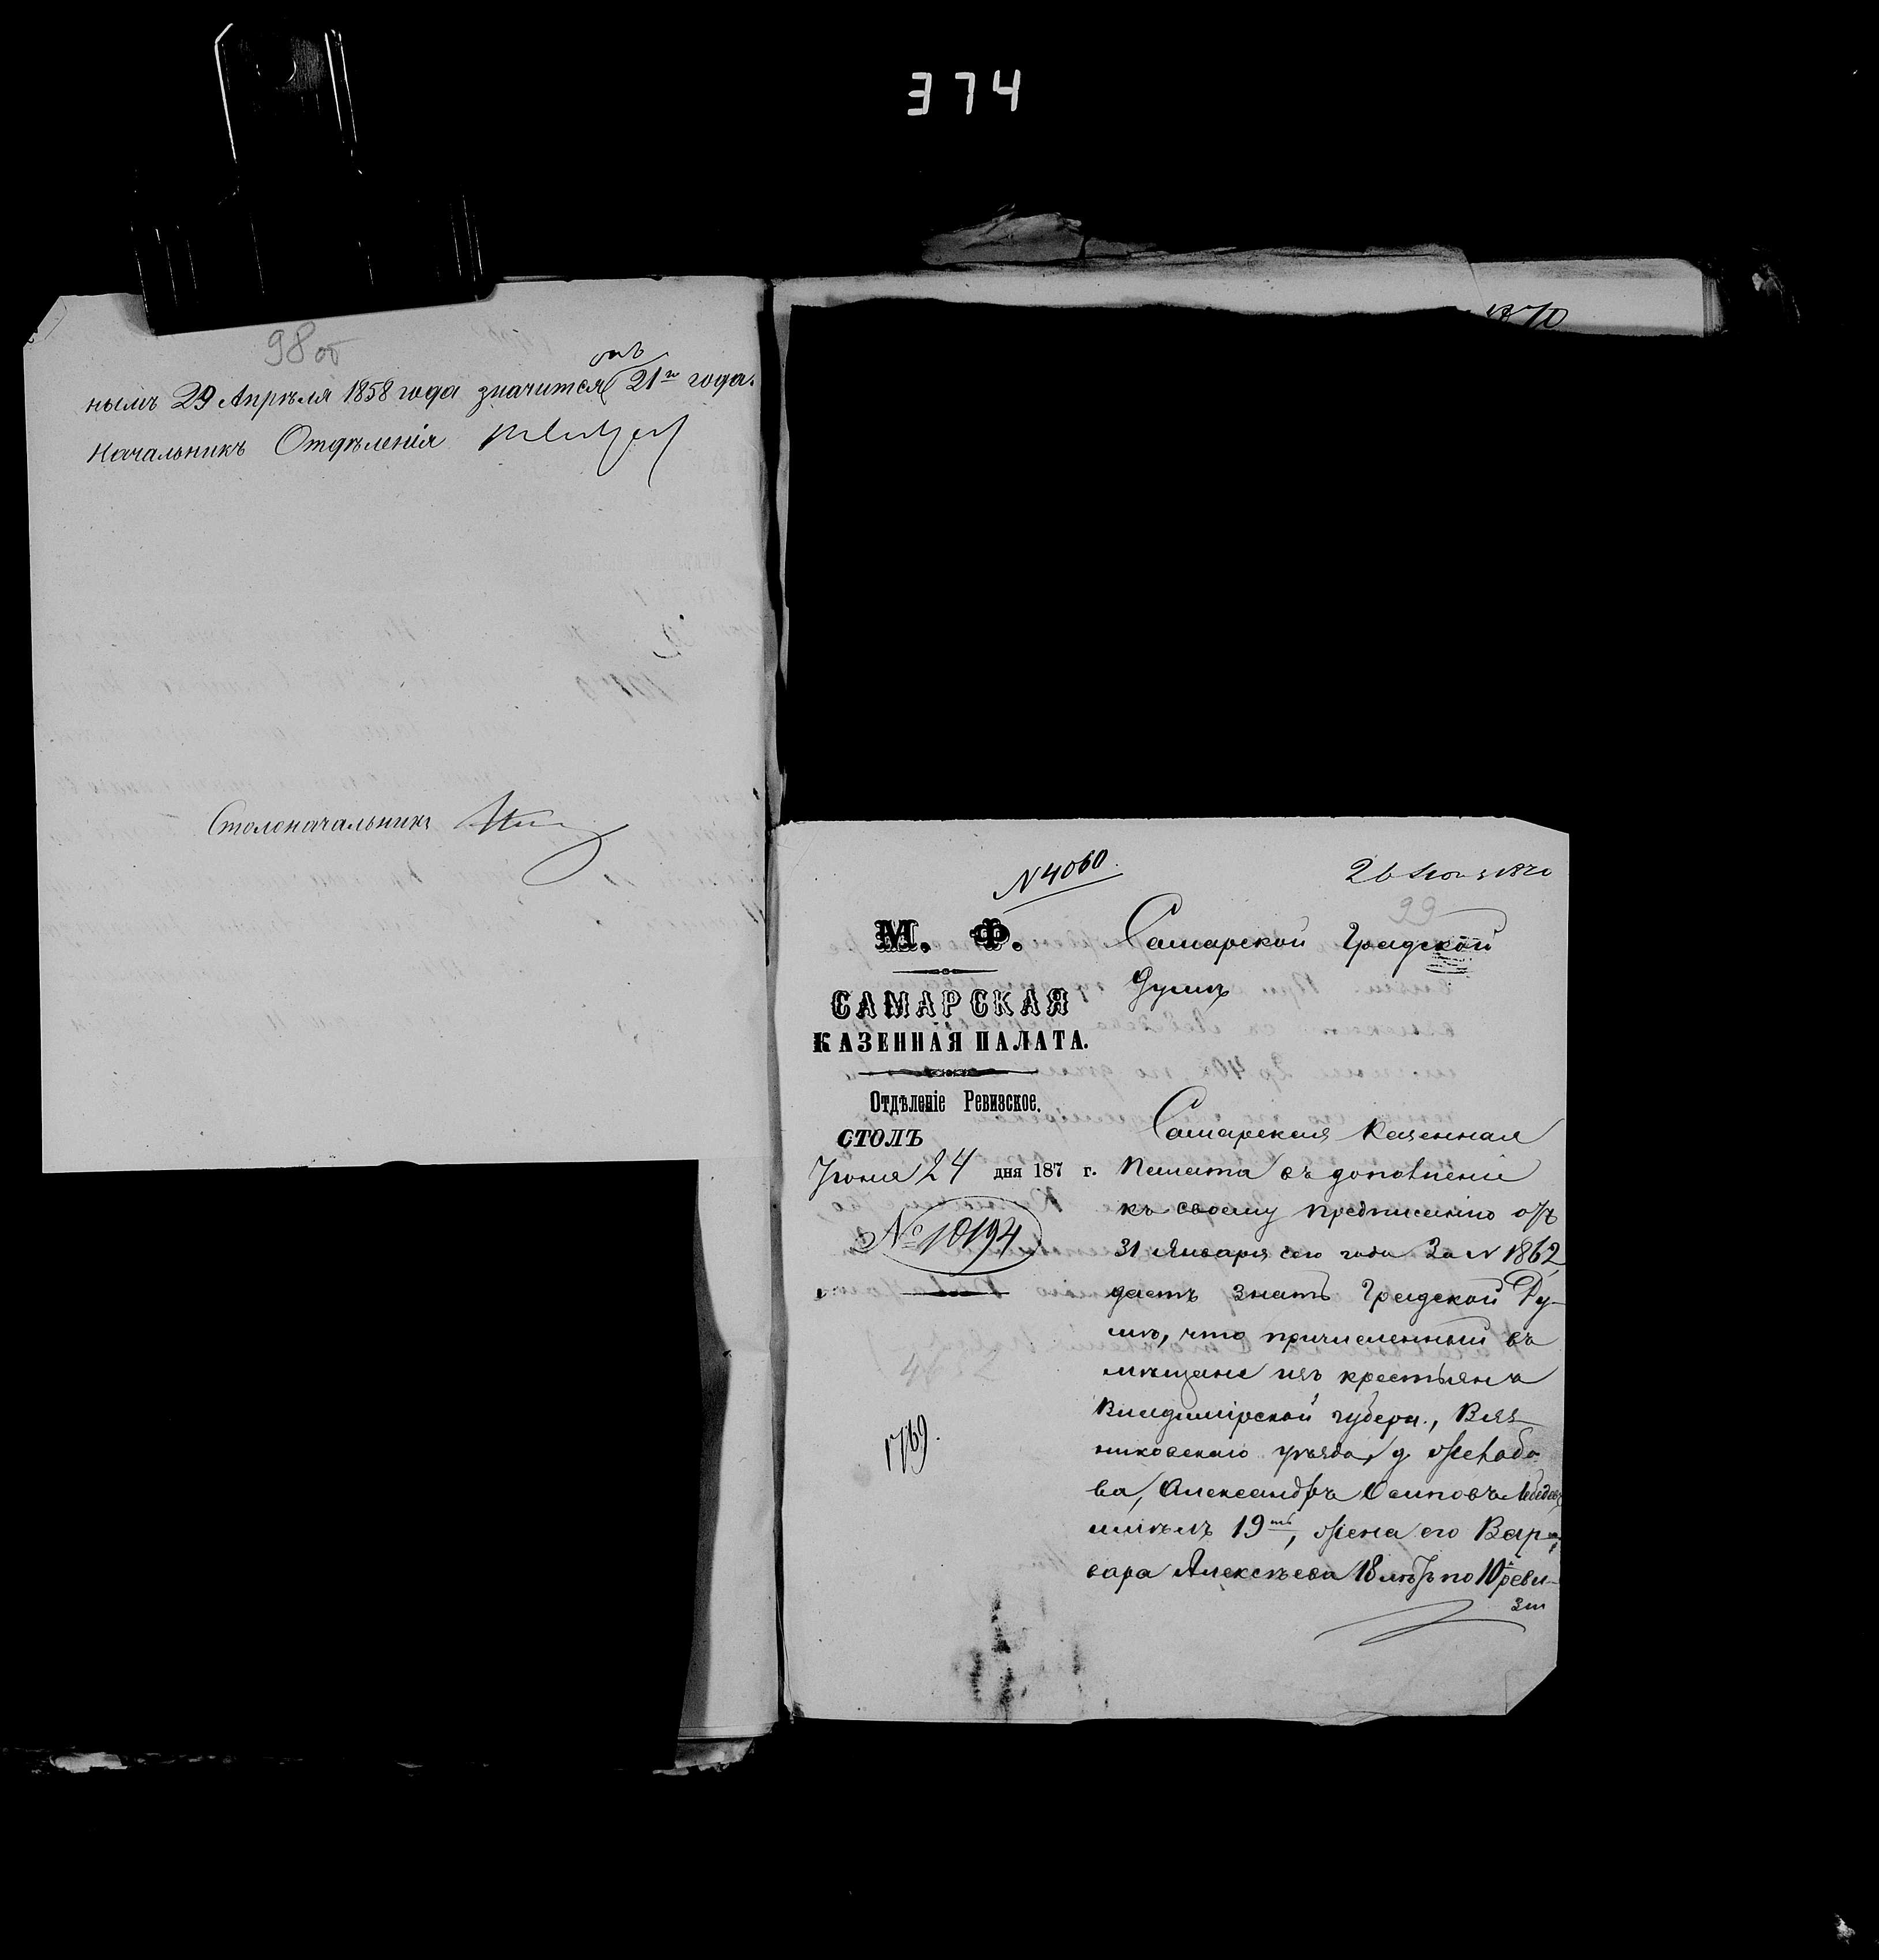 374
1870
98 об
нымъ 29 Апрѣля 1858 года значится онъ 21го года.
Начальникъ Отдѣленія
Столоначальникъ
N 4060.
26 1870
99
М. Ф.
САМАРСКАЯ
КАЗЕННАЯ ПАЛАТА.
Отдѣленіе Ревизское.
СТОЛЪ
Іюня 24 дня 187 г.
№ 10194
1769.
Самарской Градской
Думѣ
Самарская Казенная
Палата въ дополненіе
къ своему предписанію отъ
31 Января сего года за N 1862,
даетъ знать Градской Ду-
мѣ, что причисленный въ
мѣщане изъ крестьянъ
Владимірской губерн., Вяз-
никовскаго уѣзда, д.
ва, Александръ Осиповъ Лебедевъ
19ть, жена его Вар-
вара Алексѣева 18 лѣтъ по 10й реви-
зіи